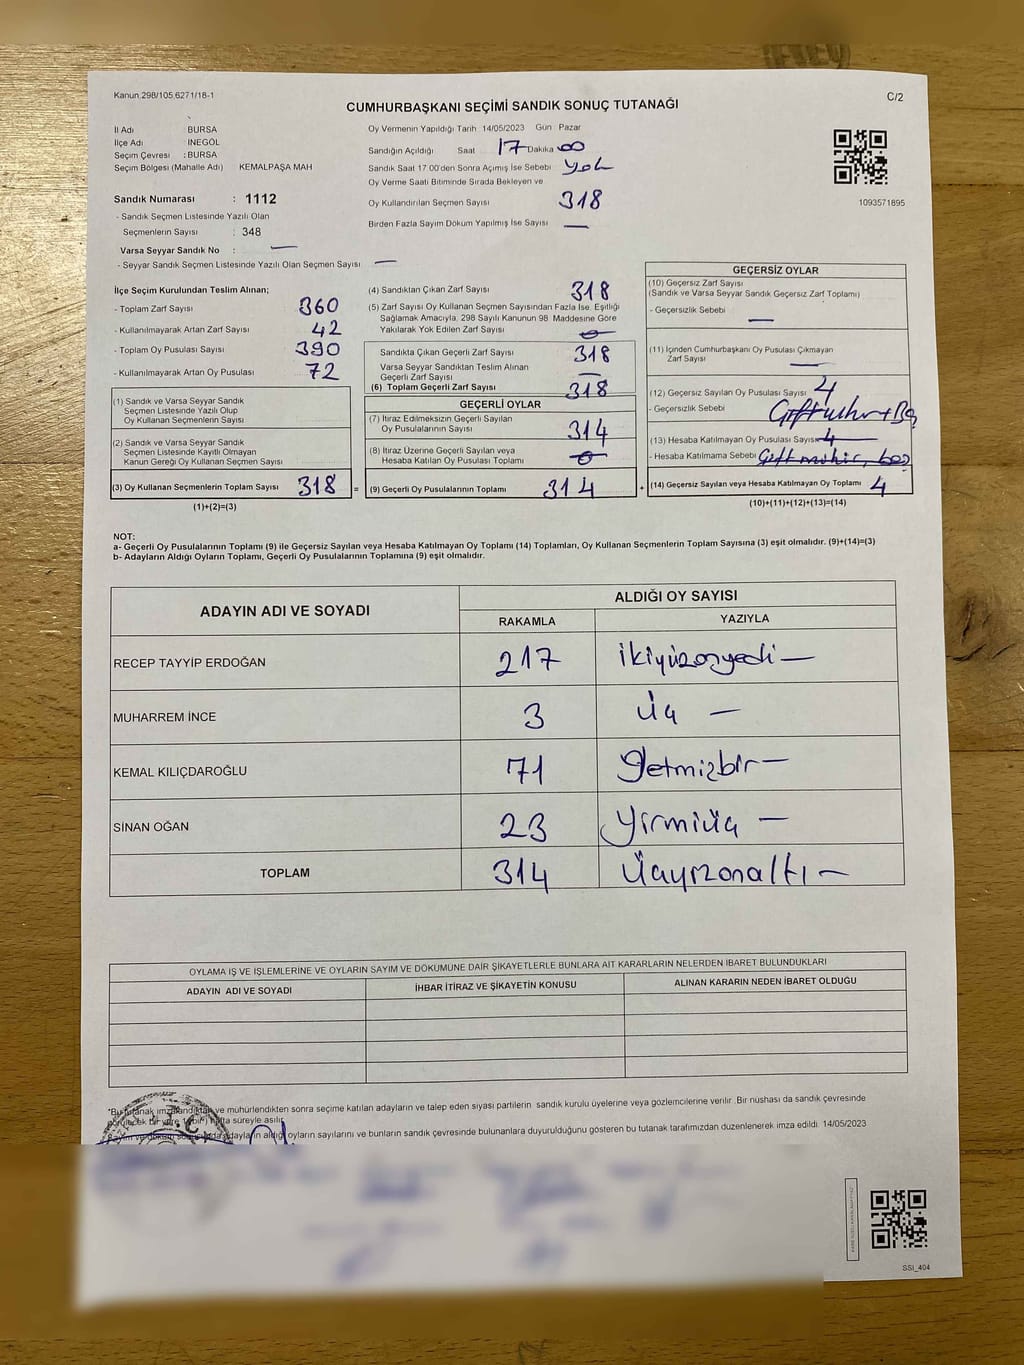 Kanun,298/105,6271/18-1
C/2
CUMHURBAŞKANI SEÇİMİ SANDIK SONUÇ TUTANAĞI
İl Adı : BURSA
İlçe Adı : İNEGÖL
Seçim Çevresi : BURSA
Seçim Bölgesi (Mahalle Adı) KEMALPAŞA MAH
Sandık Numarası : 1112
- Sandık Seçmen Listesinde Yazılı Olan
Seçmenlerin Sayısı : 348
Varsa Seyyar Sandık No : —
- Seyyar Sandık Seçmen Listesinde Yazılı Olan Seçmen Sayısı —
Oy Vermenin Yapıldığı Tarih 14/05/2023 Gün Pazar
Sandığın Açıldığı Saat 17 Dakika 00
Sandık Saat 17:00'den Sonra Açımış İse Sebebi Yok
Oy Verme Saati Bitiminde Sırada Bekleyen ve
Oy Kullandırılan Seçmen Sayısı 318
Birden Fazla Sayım Döküm Yapılmış İse Sayısı —
1093571895
İlçe Seçim Kurulundan Teslim Alınan;
- Toplam Zarf Sayısı 360
- Kullanılmayarak Artan Zarf Sayısı 42
- Toplam Oy Pusulası Sayısı 390
- Kullanılmayarak Artan Oy Pusulası 72
(1) Sandık ve Varsa Seyyar Sandık
Seçmen Listesinde Yazılı Olup
Oy Kullanan Seçmenlerin Sayısı
(2) Sandık ve Varsa Seyyar Sandık
Seçmen Listesinde Kayıtlı Olmayan
Kanun Gereği Oy Kullanan Seçmen Sayısı
(3) Oy Kullanan Seçmenlerin Toplam Sayısı 318 =
(1)+(2)=(3)
(4) Sandıktan Çıkan Zarf Sayısı 318
(5) Zarf Sayısı Oy Kullanan Seçmen Sayısından Fazla İse, Eşitliği
Sağlamak Amacıyla, 298 Sayılı Kanunun 98. Maddesine Göre
Yakılarak Yok Edilen Zarf Sayısı 0
Sandıkta Çıkan Geçerli Zarf Sayısı 318
Varsa Seyyar Sandıktan Teslim Alınan
Geçerli Zarf Sayısı —
(6) Toplam Geçerli Zarf Sayısı 318
GEÇERLİ OYLAR
(7) İtiraz Edilmeksizin Geçerli Sayılan
Oy Pusulalarının Sayısı 314
(8) İtiraz Üzerine Geçerli Sayılan veya
Hesaba Katılan Oy Pusulası Toplamı 0
(9) Geçerli Oy Pusulalarının Toplamı 314 +
GEÇERSİZ OYLAR
(10) Geçersiz Zarf Sayısı
(Sandık ve Varsa Seyyar Sandık Geçersiz Zarf Toplamı)
- Geçersizlik Sebebi —
(11) İçinden Cumhurbaşkanı Oy Pusulası Çıkmayan
Zarf Sayısı —
(12) Geçersiz Sayılan Oy Pusulası Sayısı 4
- Geçersizlik Sebebi
(13) Hesaba Katılmayan Oy Pusulası Sayısı 4
- Hesaba Katılmama Sebebi Çift mühür, boş
(14) Geçersiz Sayılan veya Hesaba Katılmayan Oy Toplamı 4
(10)+(11)+(12)+(13)=(14)
NOT:
a- Geçerli Oy Pusulalarının Toplamı (9) ile Geçersiz Sayılan veya Hesaba Katılmayan Oy Toplamı (14) Toplamları, Oy Kullanan Seçmenlerin Toplam Sayısına (3) eşit olmalıdır. (9)+(14)=(3)
b- Adayların Aldığı Oyların Toplamı, Geçerli Oy Pusulalarının Toplamına (9) eşit olmalıdır.
ADAYIN ADI VE SOYADI ALDIĞI OY SAYISI
RAKAMLA YAZIYLA
RECEP TAYYİP ERDOĞAN 217 İkiyüzonyedi —
MUHARREM İNCE 3 Üç —
KEMAL KILIÇDAROĞLU 71 Yetmişbir —
SİNAN OĞAN 23 Yirmiüç —
TOPLAM 314 Üçyüzonaltı —
OYLAMA İŞ VE İŞLEMLERİNE VE OYLARIN SAYIM VE DÖKÜMÜNE DAİR ŞİKAYETLERLE BUNLARA AİT KARARLARIN NELERDEN İBARET BULUNDUKLARI
ADAYIN ADI VE SOYADI İHBAR İTİRAZ VE ŞİKAYETİN KONUSU ALINAN KARARIN NEDEN İBARET OLDUĞU
*Bu tutanak imzalandıktan ve mühürlendikten sonra seçime katılan adayların ve talep eden siyasi partilerin sandık kurulu üyelerine veya gözlemcilerine verilir. Bir nüshası da sandık çevresinde
görülecek bir yere 1(bir) hafta süreyle asılır.
Sayım ve döküm sonunda adayların aldığı oyların sayılarını ve bunların sandık çevresinde bulunanlara duyurulduğunu gösteren bu tutanak tarafımızdan düzenlenerek imza edildi. 14/05/2023
SSI_404